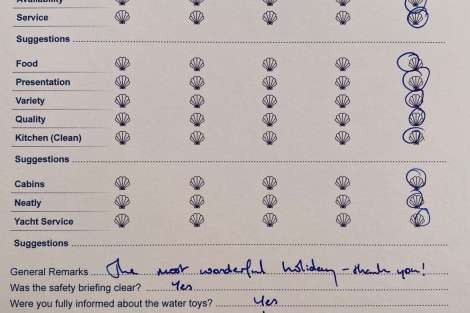 Availability
Service
Suggestions
Food
Presentation
Variety
Quality
Kitchen (Clean)
Suggestions
Cabins
Neatly
Yacht Service
Suggestions
General Remarks The most wonderful holiday - thank you!
Was the safety briefing clear? Yes
Were you fully informed about the water toys? Yes